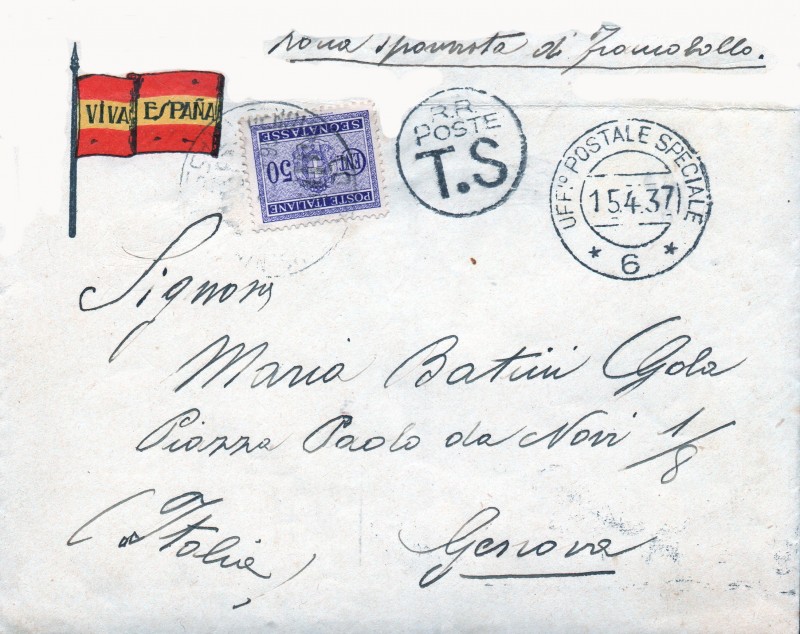 zona sprovvista di francobollo.
VIVA ESPAÑA
POSTE ITALIANE
CENT. 50
SEGNATASSE
R.R.
POSTE
T.S
UFF.º POSTALE SPECIALE
15.4.37
* 6 *
Signora
Maria Batini Gola
Piazza Paolo da Novi 1/8
(Italia) Genova